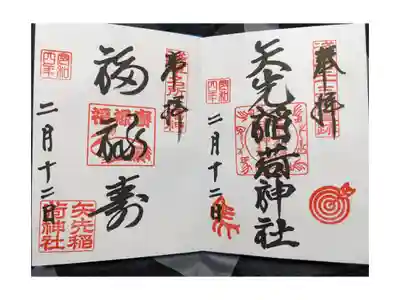 奉拝
矢先稲荷神社
令和四年
二月十二日
奉拝
福禄寿
令和四年
二月十二日
矢先稲
荷神社